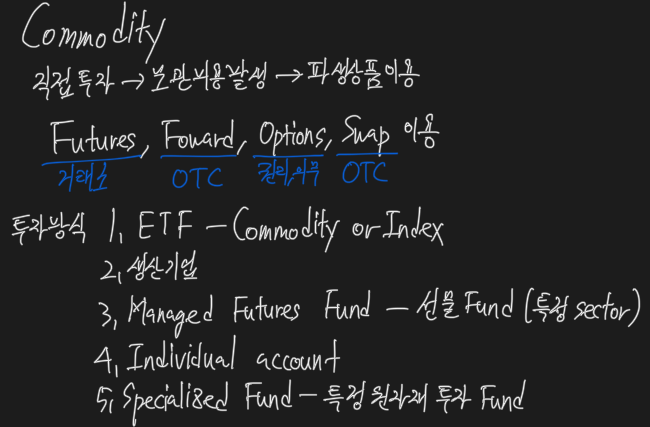 Commodity
직접 투자 → 보관비용 발생 → 파생상품 이용
Futures, Foward, Options, Swap 이용
거래소 OTC 권리, 의무 OTC
투자방식 1, ETF - Commodity or Index
2, 생산기업
3, Managed Futures Fund - 선물 Fund (특정 sector)
4, Individual account
5, Specialized Fund - 특정 원자재 투자 Fund